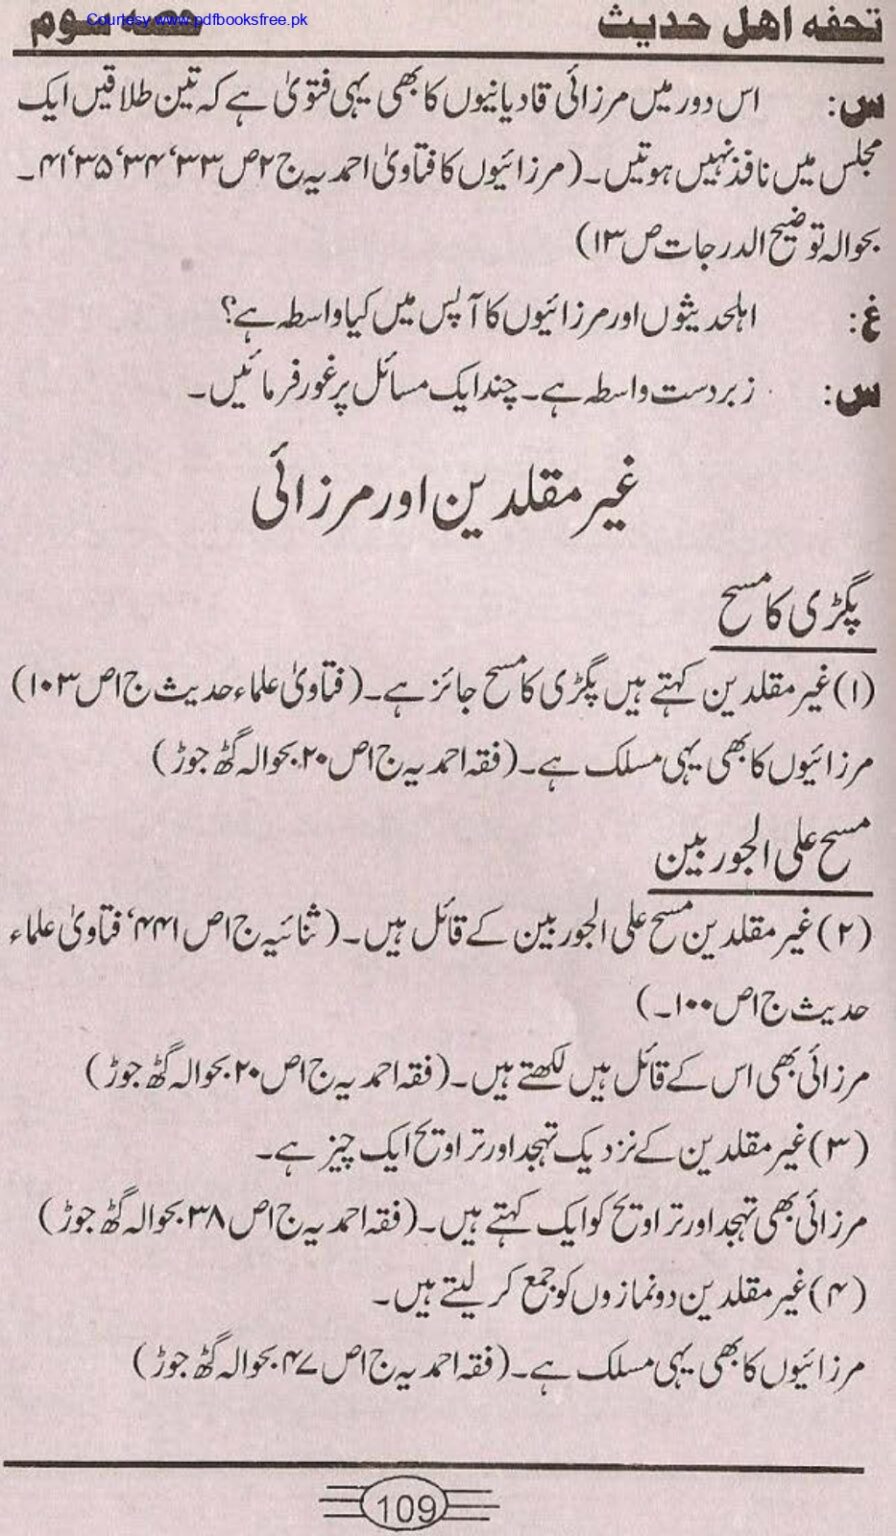 Courtesy www.pdfbooksfree.pk
تحفہ اھل حدیث حصہ سوم
س: اس دور میں مرزائی قادیانیوں کا بھی یہی فتویٰ ہے کہ تین طلاقیں ایک
مجلس میں نافذ نہیں ہوتیں۔ (مرزائیوں کا فتاویٰ احمدیہ ج ۲ ص ۳۳‘ ۳۴‘ ۳۵‘ ۴۱۔
بحوالہ توضیح الدرجات ص ۱۳)
غ: اہلحدیثوں اور مرزائیوں کا آپس میں کیا واسطہ ہے؟
س: زبردست واسطہ ہے۔ چند ایک مسائل پر غور فرمائیں۔
غیر مقلدین اور مرزائی
پگڑی کا مسح
(۱) غیر مقلدین کہتے ہیں پگڑی کا مسح جائز ہے۔ (فتاویٰ علماء حدیث ج ۱ ص ۱۰۳)
مرزائیوں کا بھی یہی مسلک ہے۔ (فقہ احمدیہ ج ۱ ص ۲۰ بحوالہ گٹھ جوڑ)
مسح علی الجوربین
(۲) غیر مقلدین مسح علی الجوربین کے قائل ہیں۔ (ثنائیہ ج ۱ ص ۴۴۱‘ فتاویٰ علماء
حدیث ج ۱ ص ۱۰۰۔)
مرزائی بھی اس کے قائل ہیں لکھتے ہیں۔ (فقہ احمدیہ ج ۱ ص ۲۰ بحوالہ گٹھ جوڑ)
(۳) غیر مقلدین کے نزدیک تہجد اور تراویح ایک چیز ہے۔
مرزائی بھی تہجد اور تراویح کو ایک کہتے ہیں۔ (فقہ احمدیہ ج ۱ ص ۳۸ بحوالہ گٹھ جوڑ)
(۴) غیر مقلدین دو نمازوں کو جمع کر لیتے ہیں۔
مرزائیوں کا بھی یہی مسلک ہے۔ (فقہ احمدیہ ج ۱ ص ۴۷ بحوالہ گٹھ جوڑ)
109